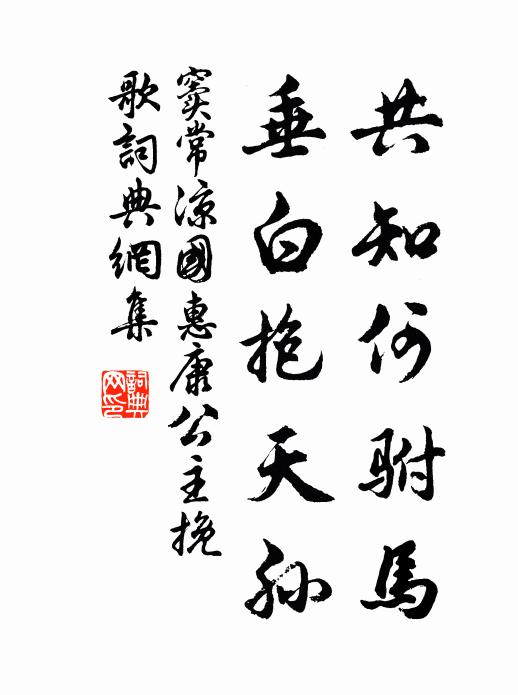 共知何駙馬
垂白抱天孫
竇常涼國惠康公主挽
歌詞典網集
詞典
网印